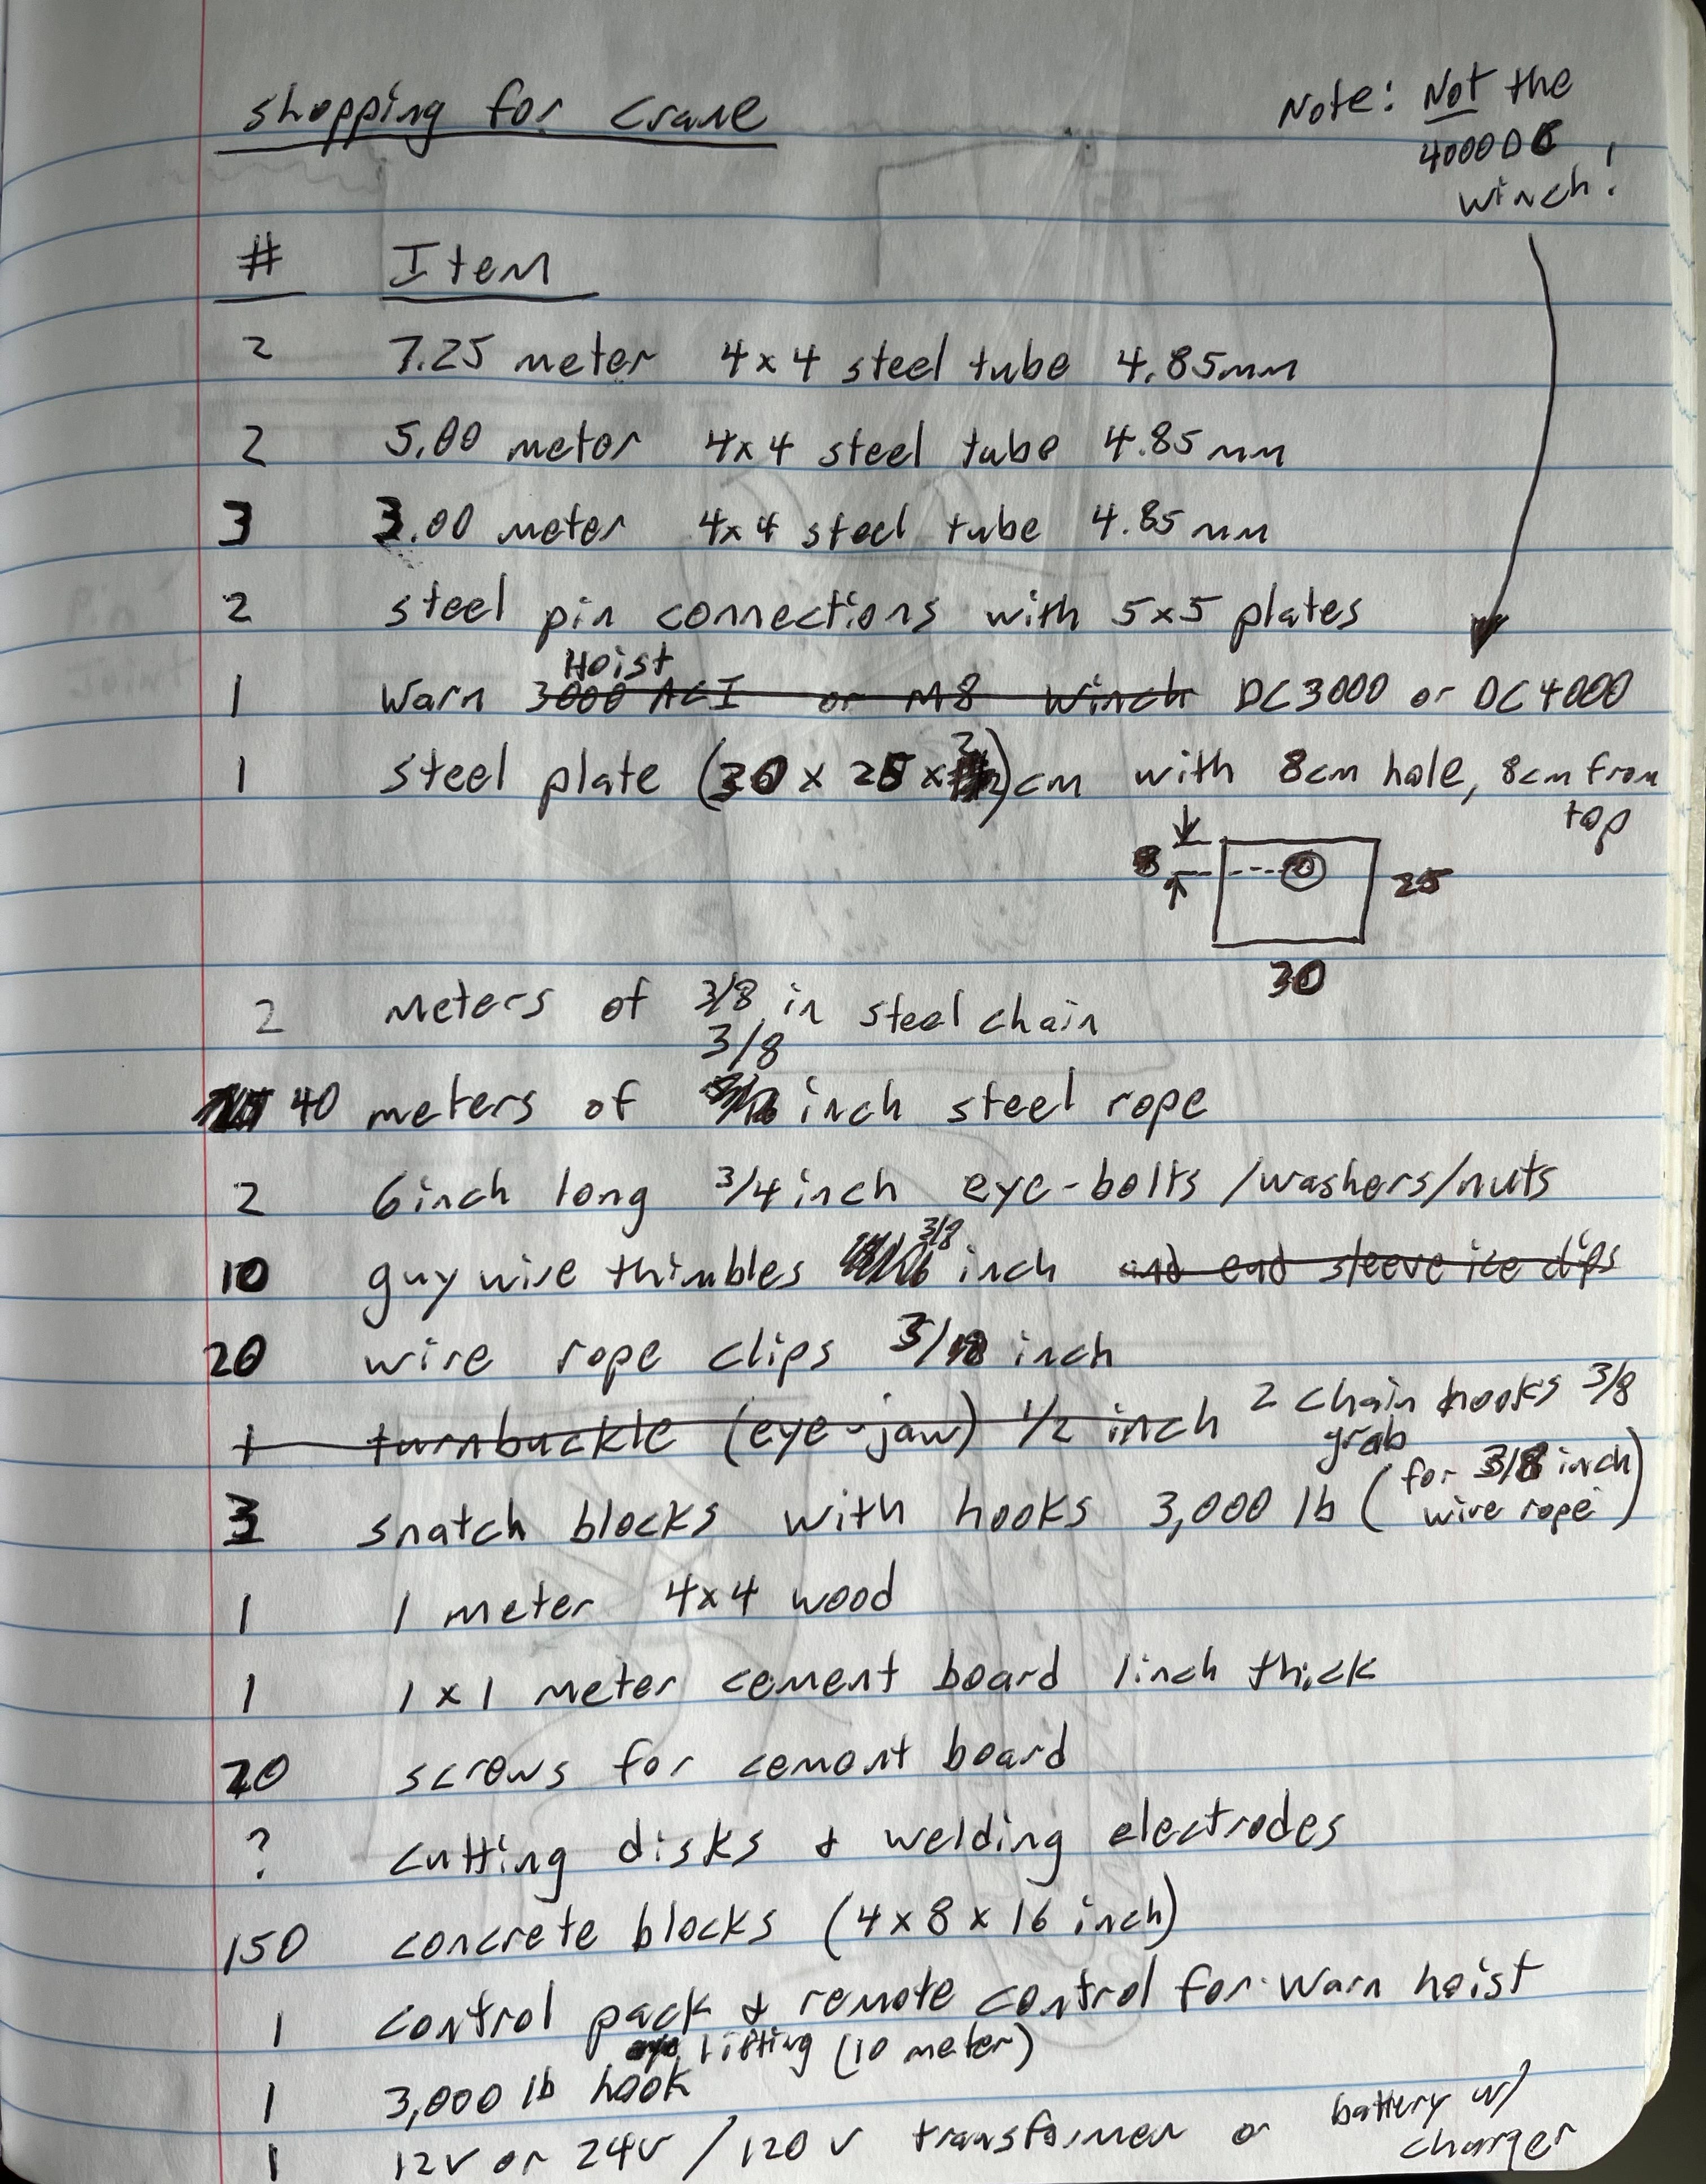 shopping for crane
Note: Not the
4000DC
winch!
# Item
2 7.25 meter 4x4 steel tube 4.85mm
2 5.00 meter 4x4 steel tube 4.85mm
3 3.00 meter 4x4 steel tube 4.85mm
2 steel pin connections with 5x5 plates
Hoist
1 Warn 3000 ACI or M8 winch DC3000 or DC4000
1 steel plate (30 x 25 x 2)cm with 8cm hole, 8cm from
top
8
25
30
2 meters of 3/8 in steel chain
3/8
40 meters of inch steel rope
2 6inch long 3/4 inch eye-bolts /washers/nuts
3/8
10 guy wire thimbles inch and end sleeve ice clips
20 wire rope clips 3/8 inch
1 turnbuckle (eye-jaw) 1/2 inch 2 chain hooks 3/8
grab
3 snatch blocks with hooks 3,000 lb (for 3/8 inch
wire rope)
1 1 meter 4x4 wood
1 1x1 meter cement board 1inch thick
20 screws for cement board
? cutting disks & welding electrodes
150 concrete blocks (4x8x16 inch)
1 control pack & remote control for Warn hoist
lifting (10 meter)
1 3,000 lb hook
1 12V or 24V / 120V transformer or battery w/
charger